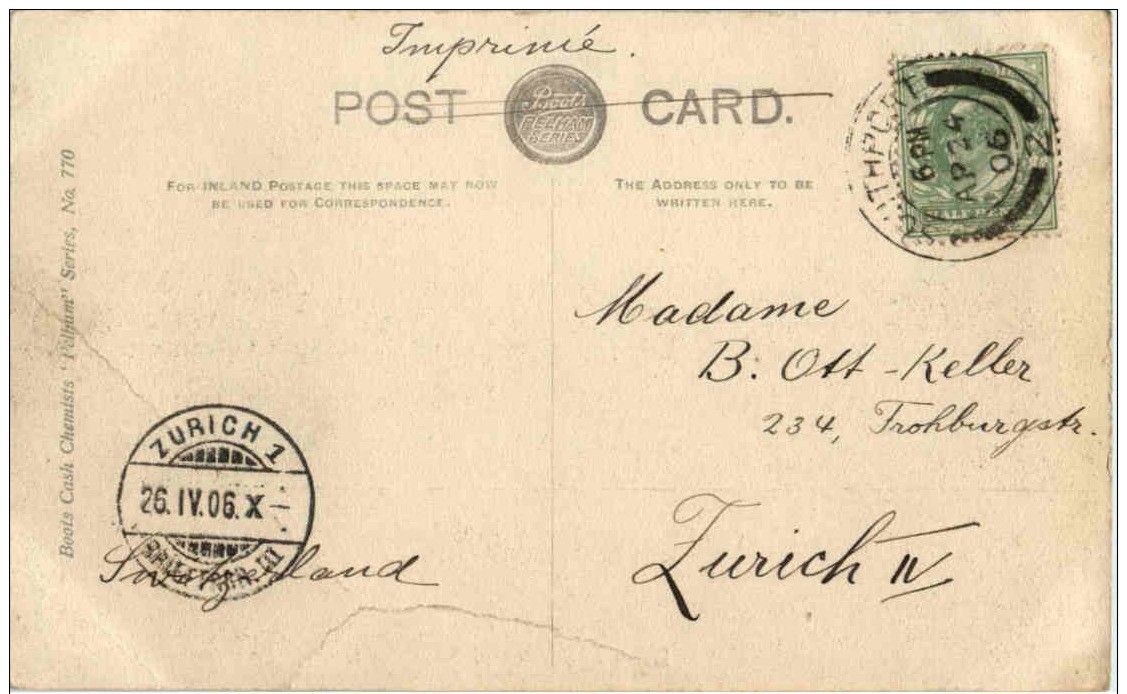 Imprimé.
POST CARD.
Boots
PELHAM
SERIES
FOR INLAND POSTAGE THIS SPACE MAY NOW
BE USED FOR CORRESPONDENCE.
THE ADDRESS ONLY TO BE
WRITTEN HERE.
6 PM
AP 24
06
2
Boots Cash Chemists "Pelham" Series, No. 770
Madame
B: Ott-Keller
234, Frohburgstr.
Zurich IV
ZURICH 1
26.IV.06.X-
Switzerland